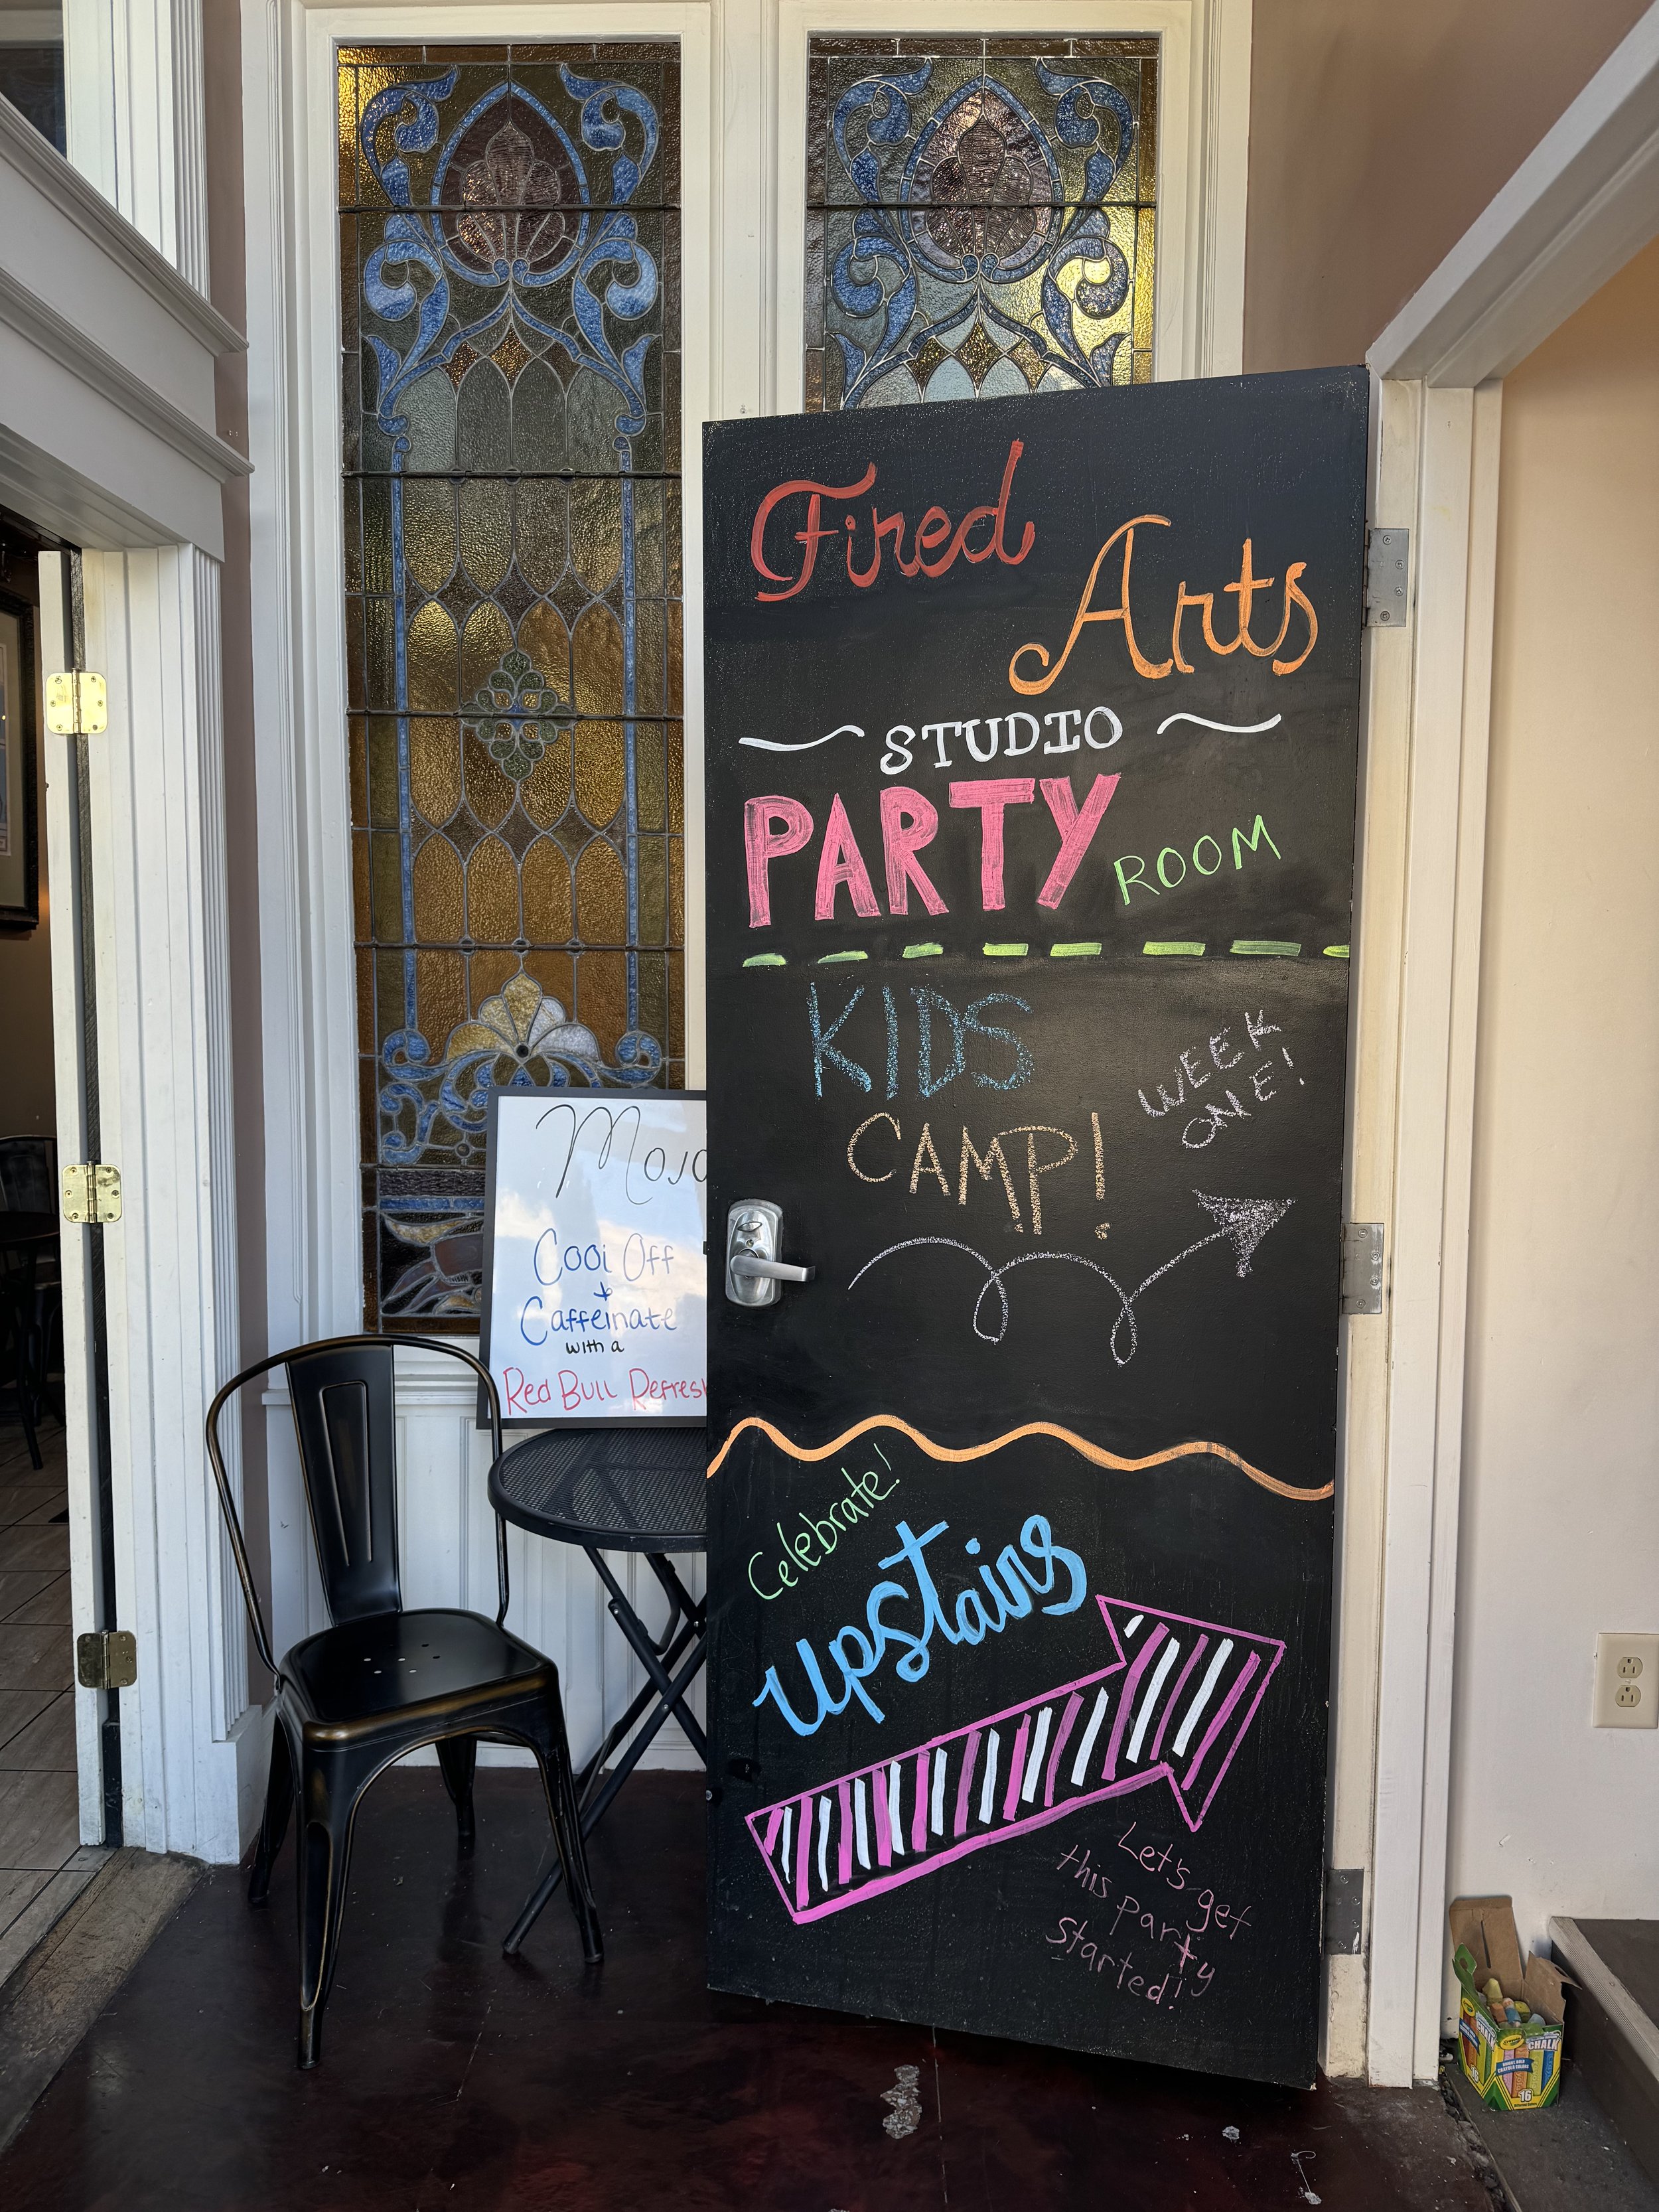 Fired
Arts
STUDIO
PARTY
ROOM
KIDS
CAMP!
WEEK
ONE!
Celebrate!
upstairs
Let's get
this party
started!
Cool Off
+
Caffeinate
with a
Red Bull Refresh
Crayola
CHALK
16